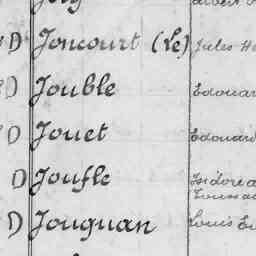 D Joncourt (le) Jules
D Jouble Edouar
D Jouet Edouard
D Joufle Isidore
D Jouguan Louis